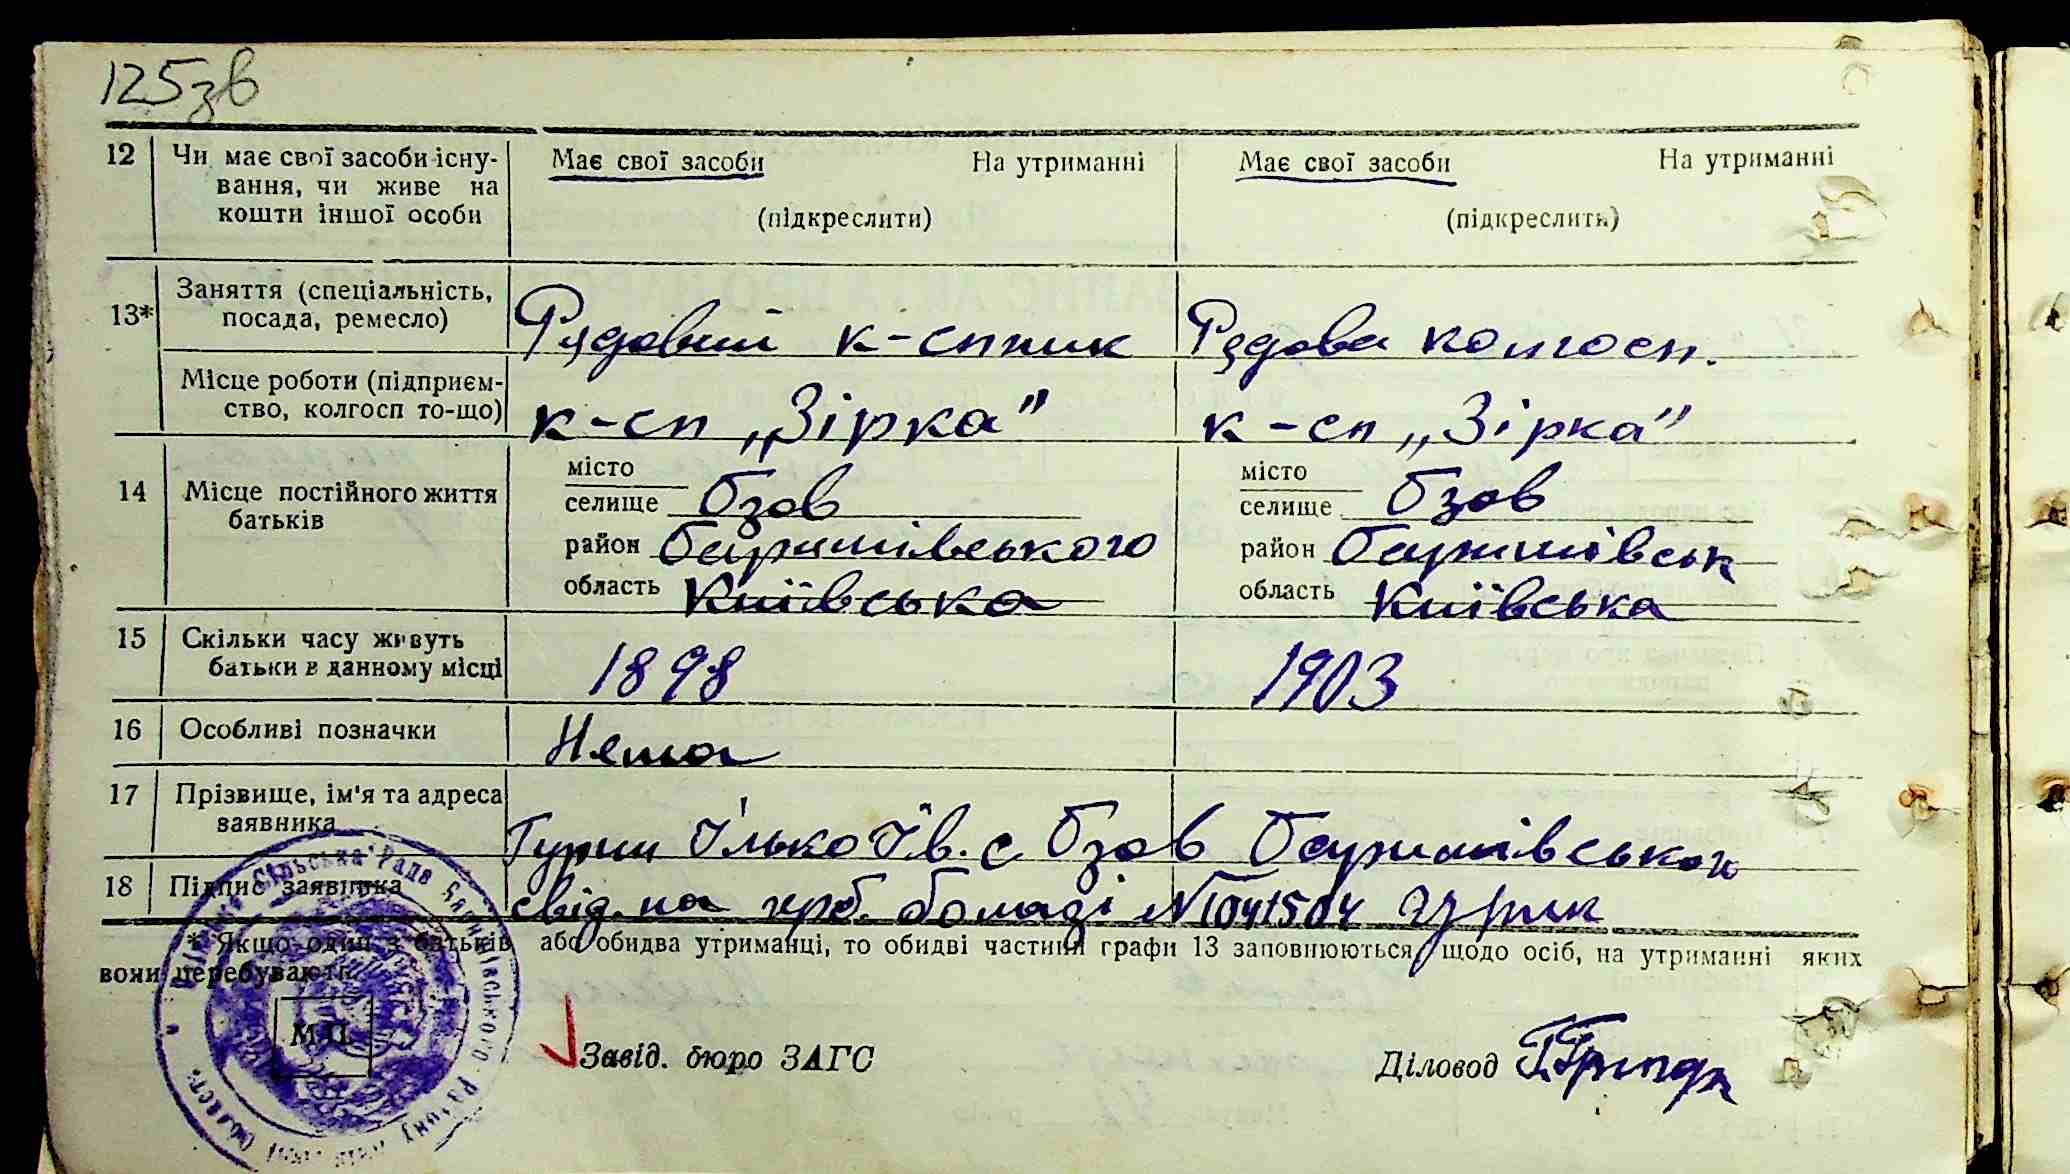 125зв
12 Чи має свої засоби існу- Має свої засоби На утриманні Має свої засоби На утриманні
вання, чи живе на
кошти іншої особи (підкреслити) (підкреслить)
13* Заняття (спеціальність,
посада, ремесло) Рядовий к-спник Рядова колгосп.
Місце роботи (підприєм-
ство, колгосп то-що) к-сп „Зірка" к-сп „Зірка"
14 Місце постійного життя
батьків
місто місто
селище Бзов селище Бзов
район Баришівського район Баришівськ
область Київська область Київська
15 Скільки часу живуть
батьки в данному місці 1898 1903
16 Особливі позначки Нема
17 Прізвище, ім'я та адреса
заявника Гурин Ілько Їв. с Бзов Баришівського
18 Підпис заявника свід. на № 1041504
* Якщо один з батьків або обидва утриманці, то обидві частини графи 13 заповнюються щодо осіб, на утриманні яких
вони перебувають.
Сільська Рада Баришівського Району Області
М.П.
Завід. бюро ЗАГС Діловод